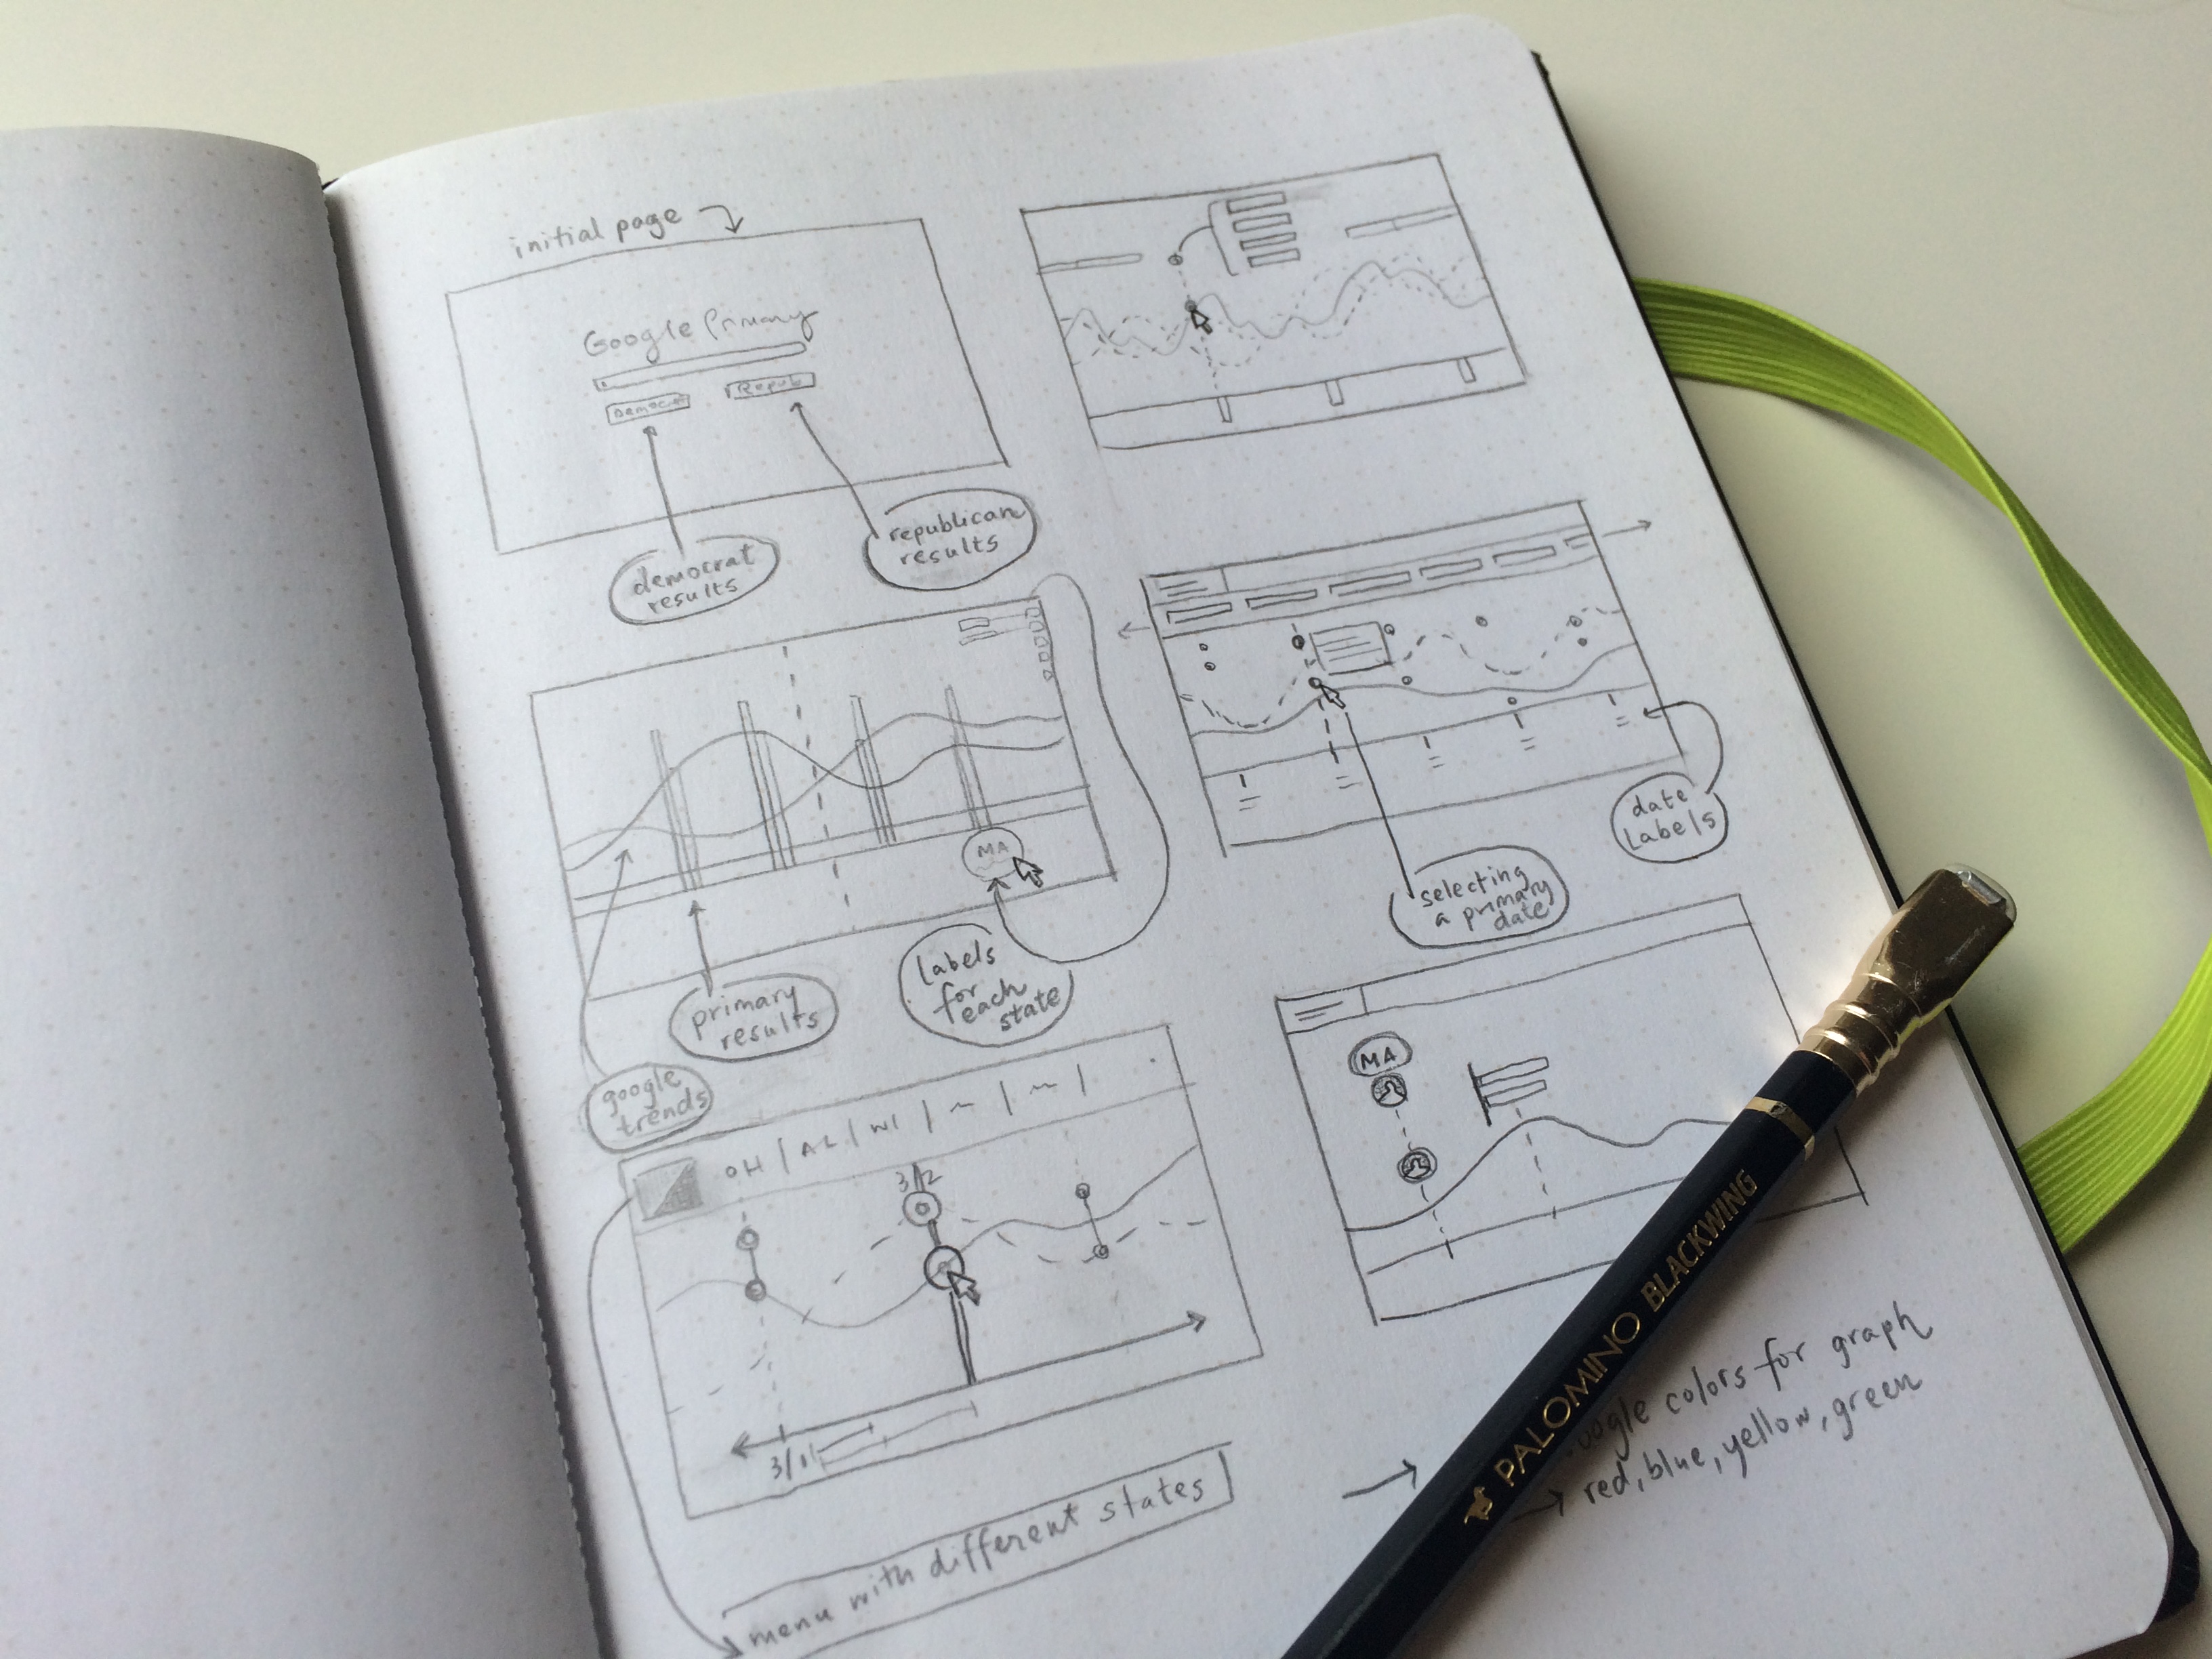 initial page
Google Primary
Democr
Repub
democrat
results
republican
results
MA
google
trends
primary
results
labels
for
each
state
selecting
a primary
date
date
labels
OH | AL | WI | ~ | ~ |
3/2
3/1
menu with different states
MA
oogle colors for graph
→ red, blue, yellow, green
PALOMINO BLACKWING